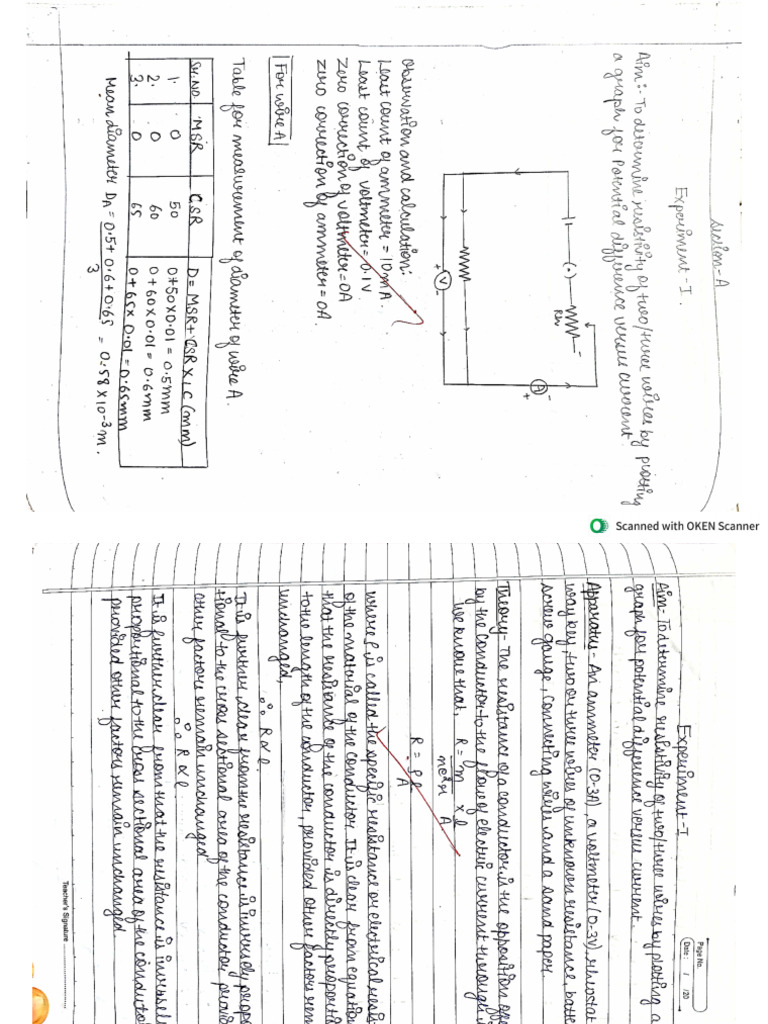 Section-A
Experiment-I.
Aim:- To determine resistivity of two/three wires by plotting
a graph for Potential difference versus current.
Rh
A
+
-
V
+
-
Observation and calculation:
Least count of ammeter = 10mA.
Least count of voltmeter = 0.1V
Zero correction of voltmeter = 0A
zero correction of ammeter = 0A.
For wire A
Table for measurement of diameter of wire A.
Sr.NO. MSR CSR D = MSR + CSR X LC (mm)
1. 0 50 0+50X0.01 = 0.5mm
2. 0 60 0+60X0.01 = 0.6mm
3. 0 65 0+65X 0.01 = 0.65mm
Mean diameter DA = 0.5+0.6+0.65 / 3 = 0.58X10-3m.
Scanned with OKEN Scanner
Page No.
Date: / /20
Experiment-I
Aim- To determine resistivity of two/three wires by plotting a
graph for potential difference versus current.
Apparatus- An ammeter (0-3A), a voltmeter (0-3V), rheostat
way key, two or three wires of unknown resistance, batte
screw gauge, connecting wires and a sand paper.
Theory- The resistance of a conductor is the opposition offe
by the conductor to the flow of electric current through i
We know that, R = m / ne2τ X l / A
R = ρl / A
where ρ is called the specific resistance or electrical resis
of the material of the conductor. It is clear from equation
that the resistance of the conductor is directly proportio
to the length of the conductor, provided other factors rem
unchanged,
∴ R ∝ l.
It is further clear from the resistance is inversely propo
tional to the cross sectional area of the conductor provid
other factors remain unchanged
∴ R ∝ l.
It is further clear from that the resistance is inversel
proportional to the cross sectional area of the conducto
provided other factors remain unchanged.
Teacher's Signature